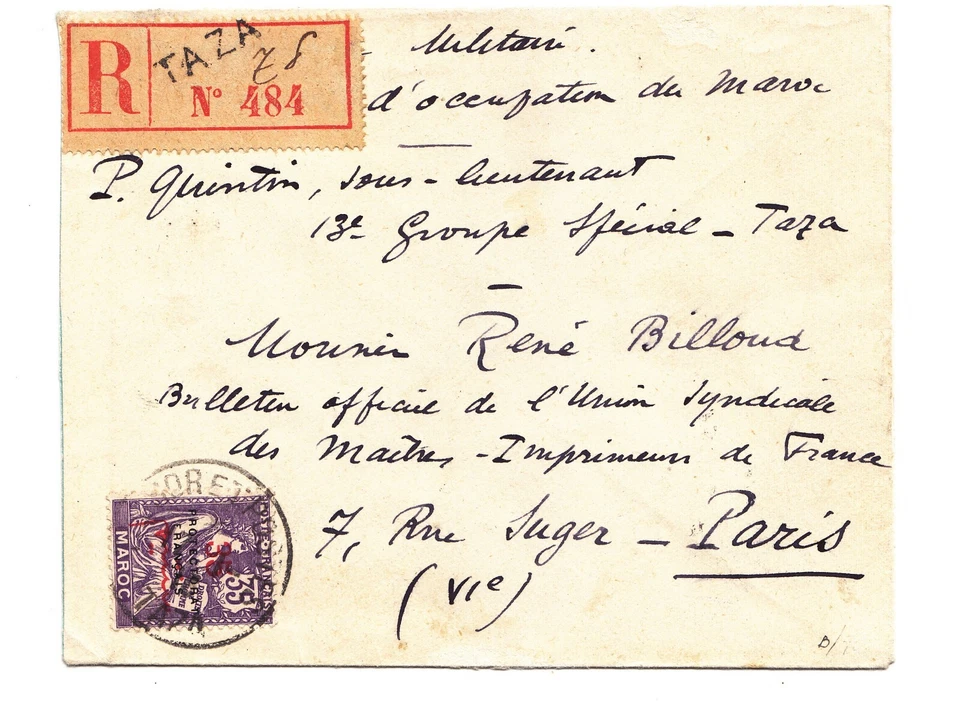 R TAZA 78
N° 484
- Militaire.
d'occupation du Maroc
P. Quintin, sous-lieutenant
13e Groupe Spécial - Taza
Monsieur René Billoud
Bulletin officiel de l'Union Syndicale
des Maîtres-Imprimeurs de France
7, Rue Suger - Paris
(VIe)
POSTE FRANÇAISE
MAROC
PROTECTORAT
FRANÇAIS
35
35
B/